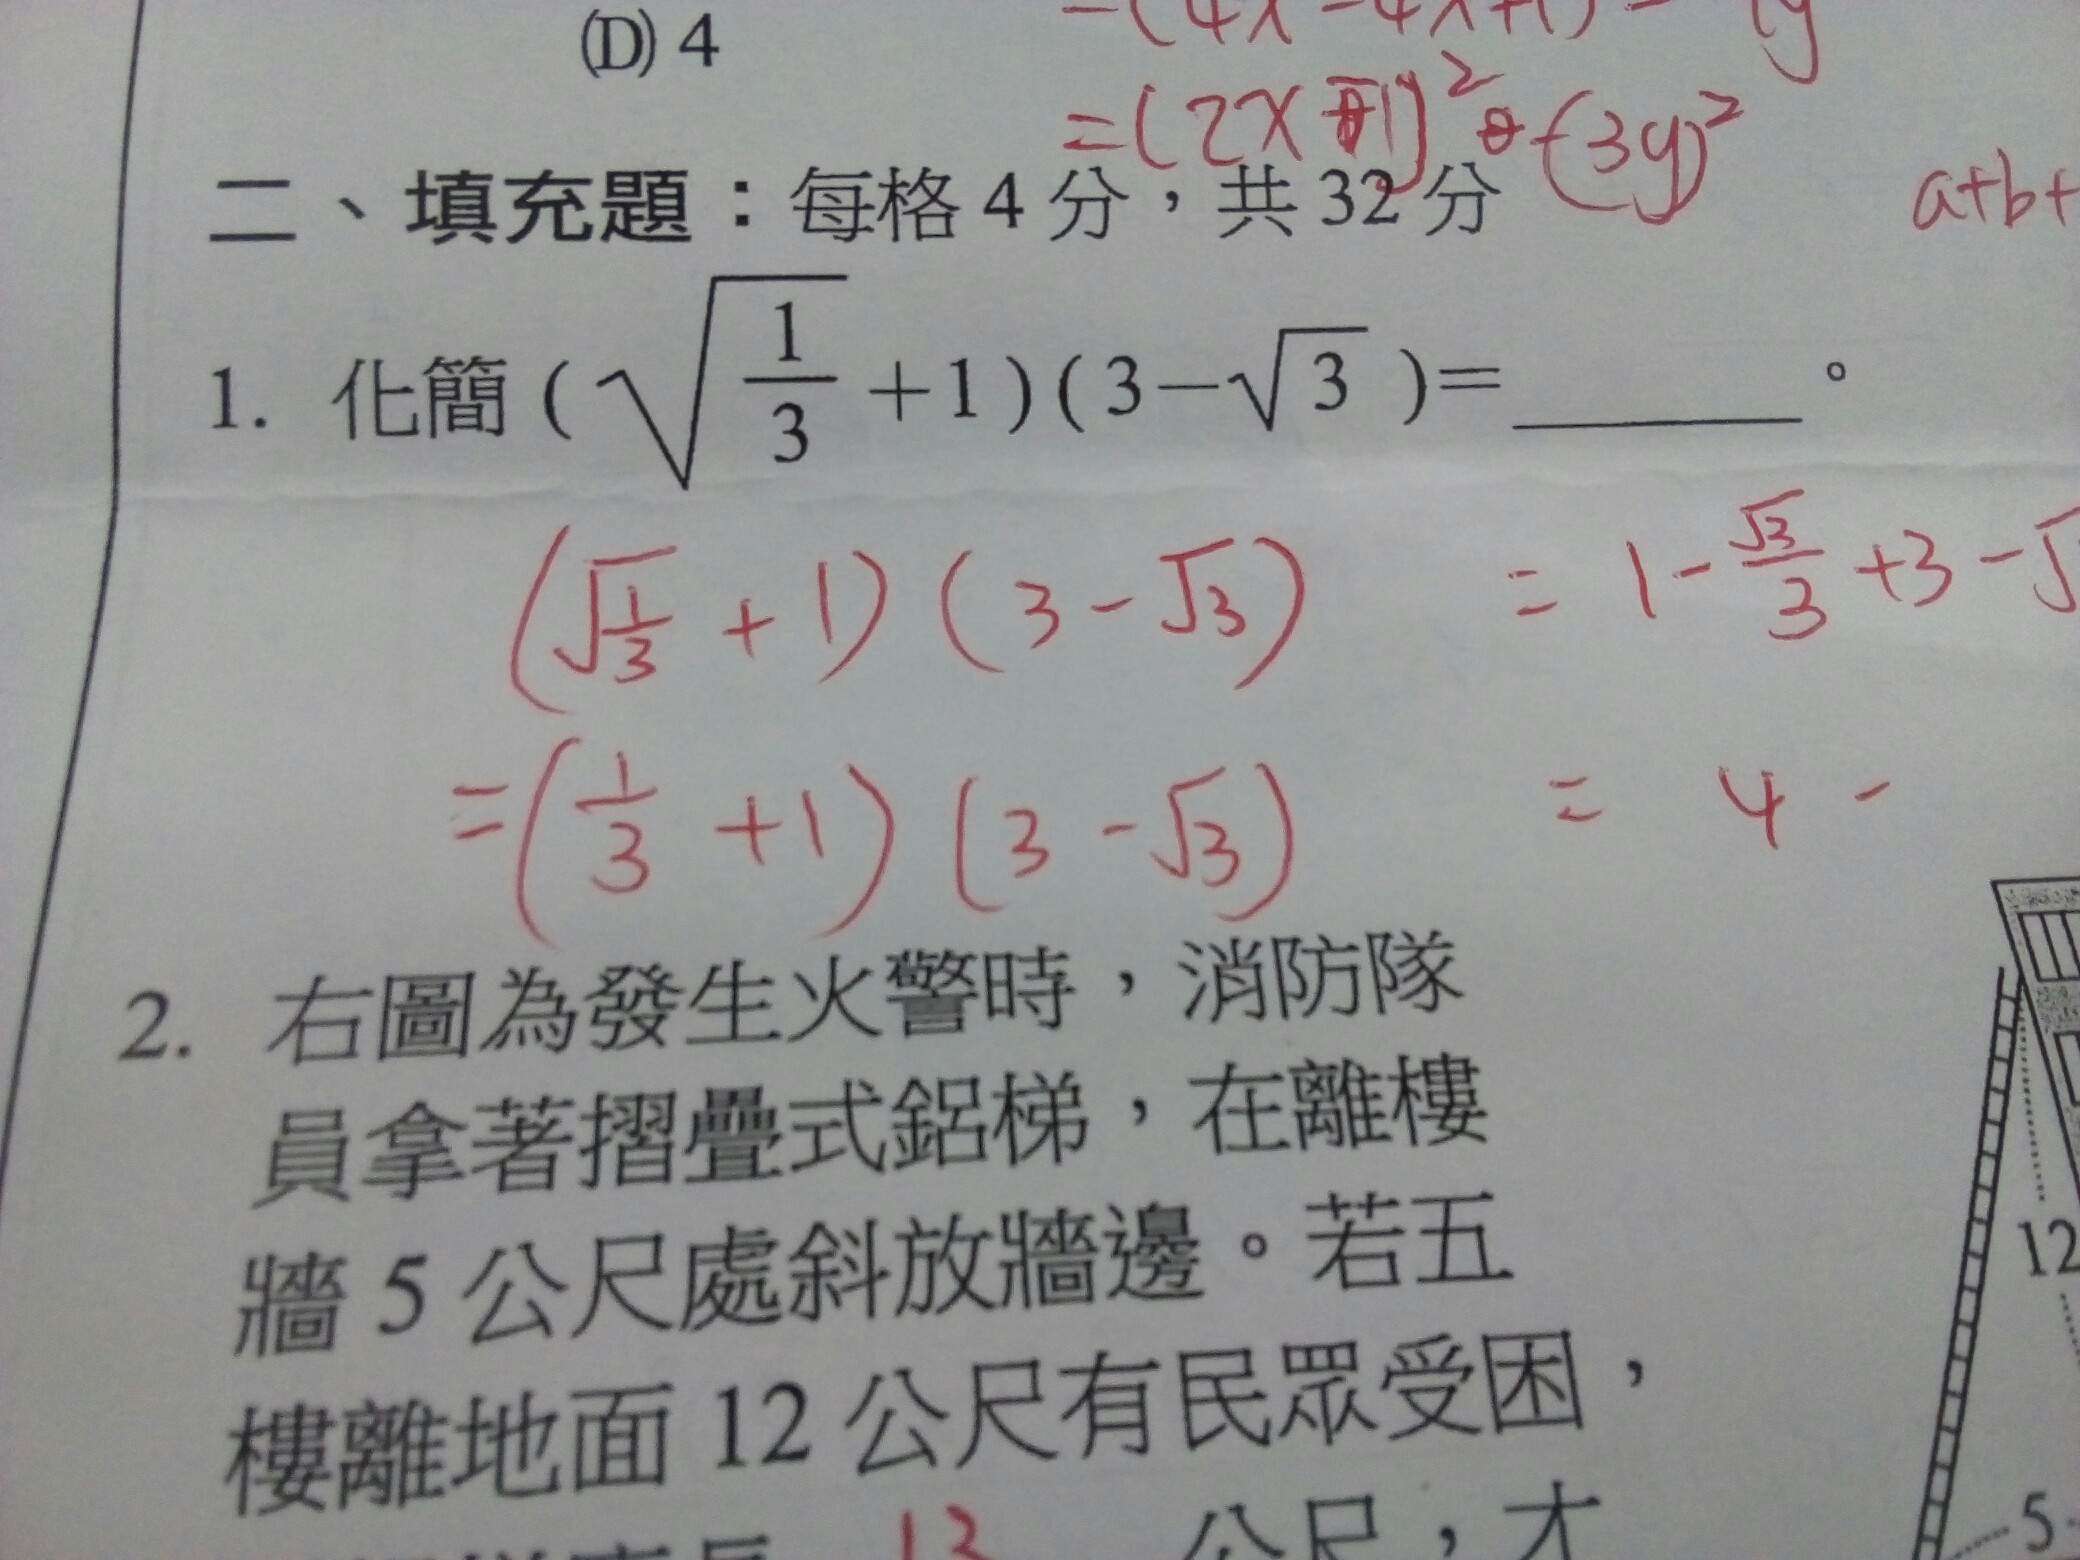 (D) 4
=(2x-1)²-(3y)²
二、填充題：每格 4 分，共 32 分
a+b+
1. 化簡 ( √(1/3) +1 ) ( 3−√3 )=______。
(√(1/3) + 1) (3 - √3) = 1 - √3/3 + 3 - √
= (1/3 + 1) (3 - √3) = 4 -
2. 右圖為發生火警時，消防隊
員拿著摺疊式鋁梯，在離樓
牆 5 公尺處斜放牆邊。若五
樓離地面 12 公尺有民眾受困，
13 公尺，才
12
5